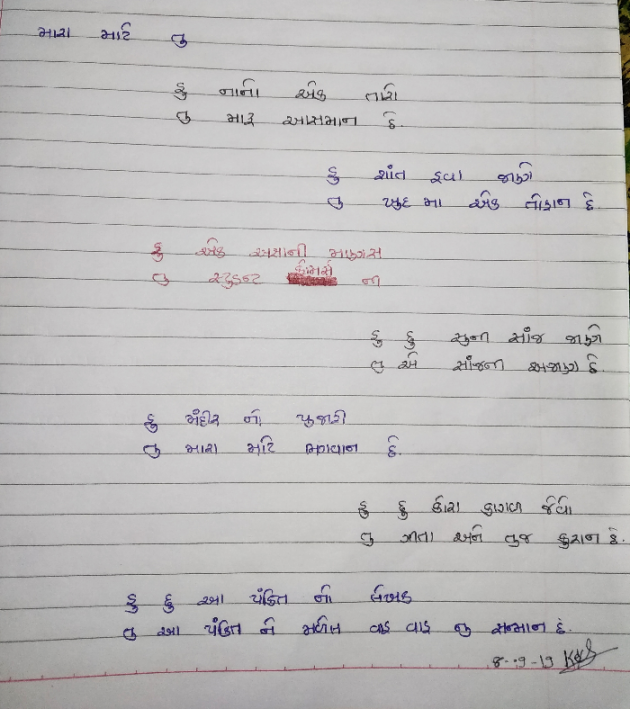 મારા માટે તુ
હુ નાનો એક તારો
તુ મારૂ આસમાન છે.
હુ શાંત હવા જાણે
તુ ખુદ મા એક તોફાન છે.
હુ એક અજ્ઞાની માણસ
તુ સ્ટુડન્ટ કોમર્સ ની
હુ છુ સુની સાંજ જાણે
તુ એ સાંજની અજાણ છે.
હુ મંદીર નો પુજારી
તુ મારા માટે ભગવાન છે.
હુ છુ કોરા કાગળ જેવો
તુ ગીતા અને તુજ કુરાન છે.
હુ છુ આ પંક્તિ નો લેખક
તુ આ પંક્તિ ને મળેલ વાહ વાહ નુ સન્માન છે.
8-9-19